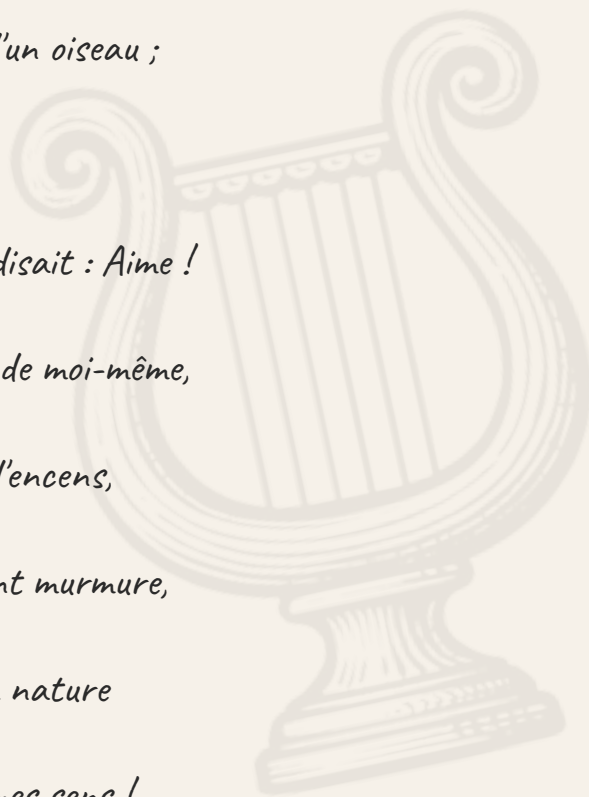 'un oiseau ;
disait : Aime !
de moi-même,
l'encens,
nt murmure,
nature
sens !